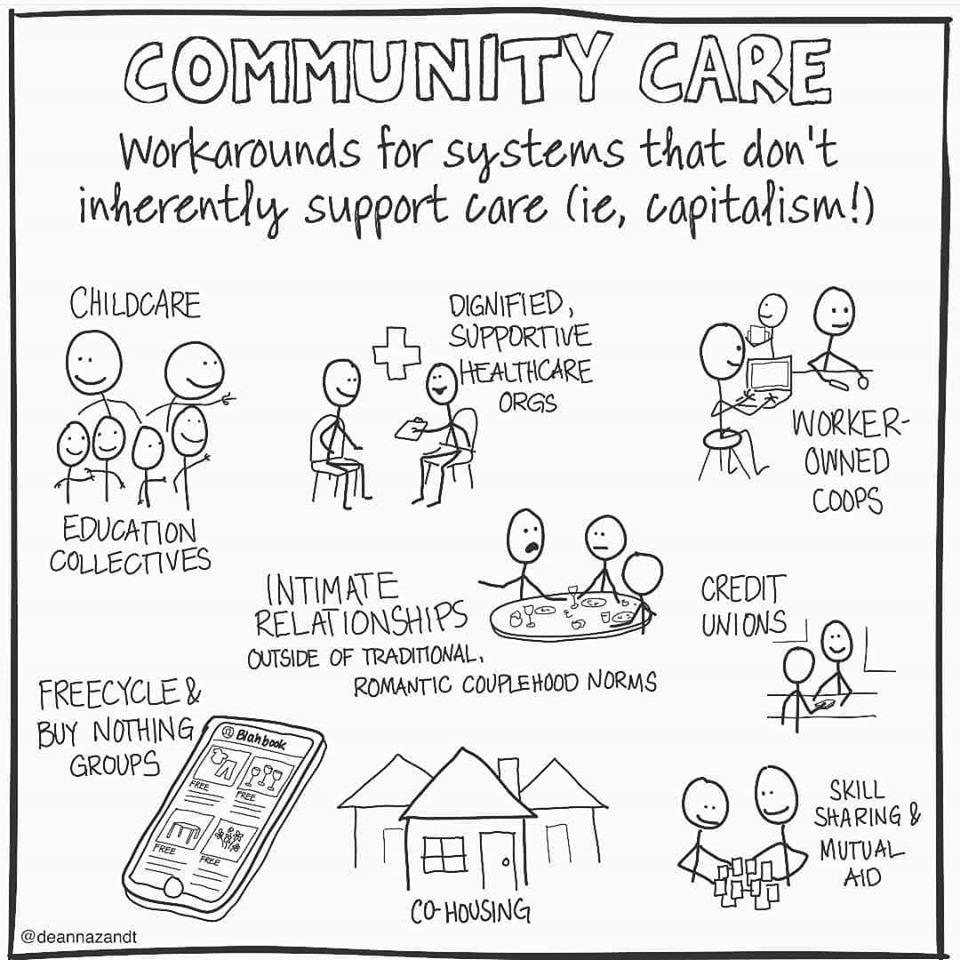 COMMUNITY CARE
Workarounds for systems that don't
inherently support care (ie, capitalism!)
CHILDCARE
EDUCATION
COLLECTIVES
DIGNIFIED,
SUPPORTIVE
HEALTHCARE
ORGS
WORKER-
OWNED
COOPS
INTIMATE
RELATIONSHIPS
OUTSIDE OF TRADITIONAL,
ROMANTIC COUPLEHOOD NORMS
CREDIT
UNIONS
FREECYCLE &
BUY NOTHING
GROUPS
Blahbook
FREE
FREE
FREE
FREE
CO-HOUSING
SKILL
SHARING &
MUTUAL
AID
@deannazandt